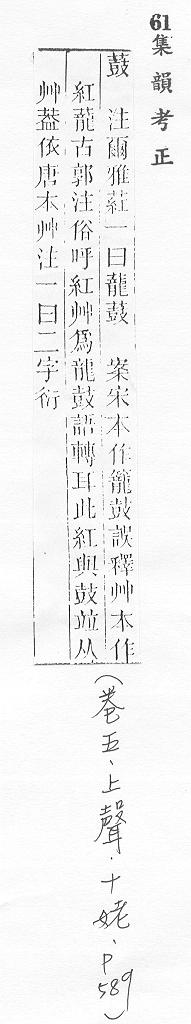 61集韻考正
鼓　注爾雅葒一曰龍鼓　案宋本作籠鼓誤釋艸本作
紅龍古郭注俗呼紅艸爲龍鼓語轉耳此紅與鼓竝从
艸葢依唐本艸注一曰二字衍
（卷五、上聲．十姥、P589）